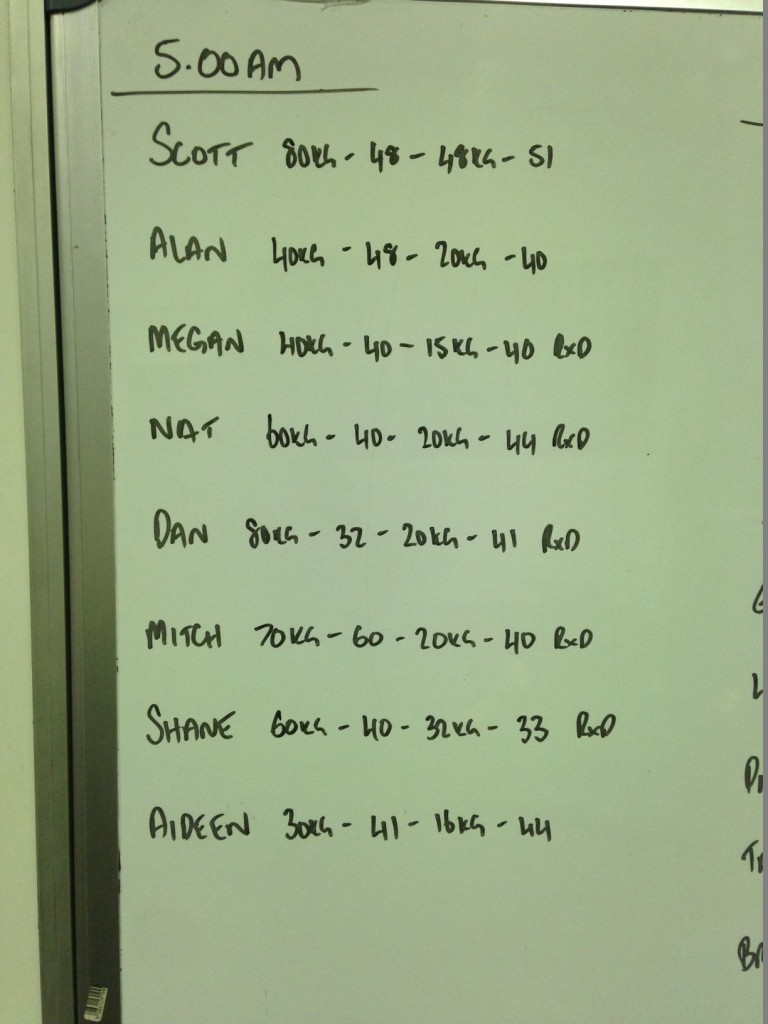 5.00AM
SCOTT 80KG - 48 - 48KG - 51
ALAN 40KG - 48 - 20KG - 40
MEGAN 40KG - 40 - 15KG - 40 RxD
NAT 60KG - 40 - 20KG - 44 RxD
DAN 80KG - 32 - 20KG - 41 RxD
MITCH 70KG - 60 - 20KG - 40 RxD
SHANE 60KG - 40 - 32KG - 33 RxD
AIDEEN 30KG - 41 - 16KG - 44